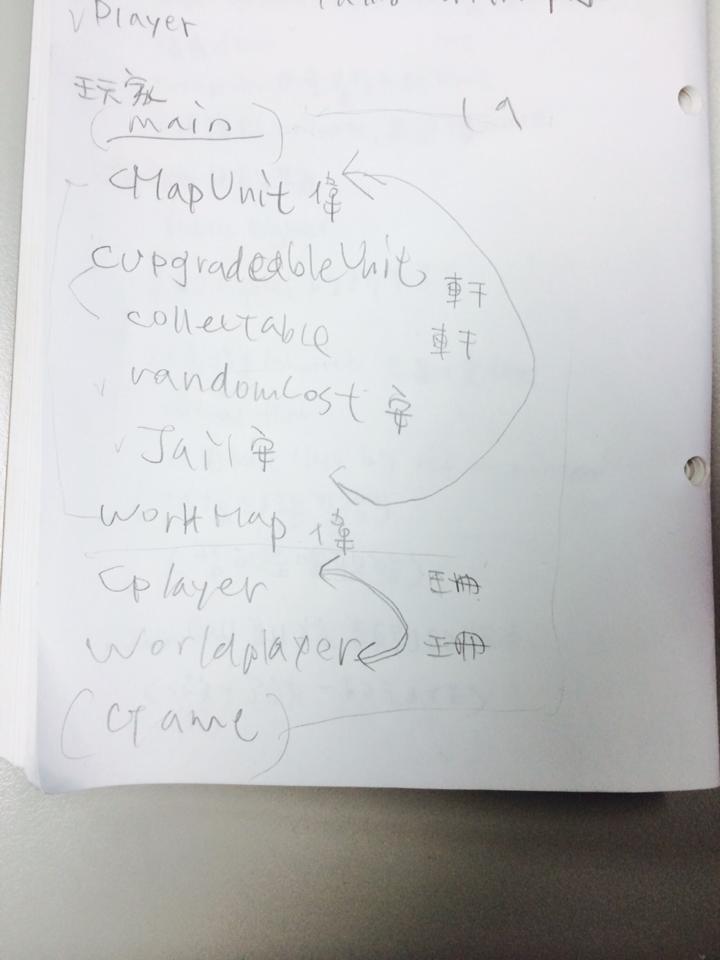 vPlayer
玩家
(main)
CMapUnit 偉
CUpgradeableUnit 軒
collectable 軒
v randomCost 安
v Jail 安
WorHMap 偉
Cplayer 珊
Worldplayer 珊
(Game)